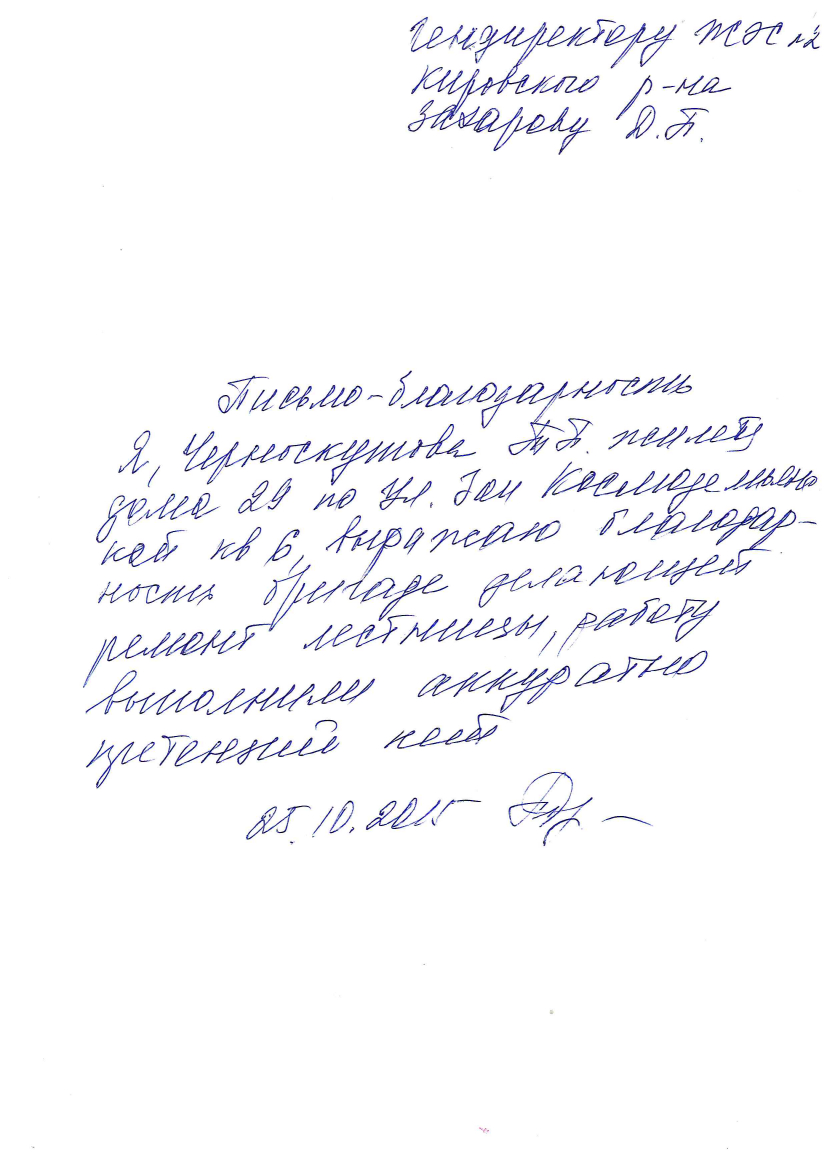 Гендиректору ЖЭС №2
Кировского р-на
Захарову Д.П.
Письмо-благодарность
Я, Черноскутова Т.П. жилец
дома 29 по ул. Зои Космодемьянс
кой кв 6, выражаю благодар-
ность бригаде делающей
ремонт лестницы, работу
выполнили аккуратно
претензий нет
25.10.2015